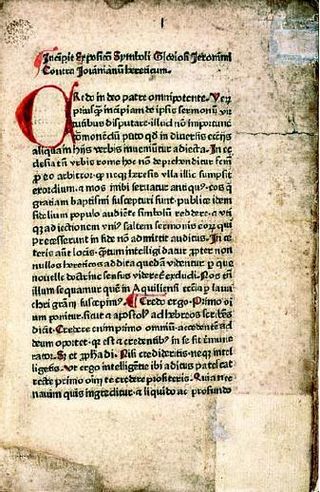 Incipit Exposicō Symboli Gloriosi Jeronimi
Contra Jovinianū hereticum.
CRedo in deo patre omnipotente. Verū
priusq̄ incipiam de ipsis sermonū vir
tutibus disputare illud nō importune
cōmonēdū puto qd in diversis ecclesijs
aliqua in hijs verbis inveniūtur adiecta. In ec
clesia tn̄ vrbis rome hoc nō deprehenditur fem
p̄ eo arbitror q̄ neq̄ heresis vlla illic sumpsit
exordium. et mos inibi servatur antiquus eos q̄
gratiam baptismi suscepturi sunt publice id est
fidelium populo audiēte simbolū reddere et vti
q̄ adiectionem vnius saltem sermonis eorū qui
precesserunt in fide nō admittit auditus. In ce
teris autē locis quātum intelligi datur propter non
nullos hereticos addita quedā videntur p que
novelle doctrine sensus videretur excludi. Nos tn̄
illum sequamur quē in Aquiliensi ecclesia p lava
chri gratiam suscepimus. Credo ergo Primo oī
um ponitur sicut et apostolus ad hebreos scribens
dicit. Credere enim primo omniū accedentē ad
deum oportet qr est et credentibus in se fit remune
rator. Sed et propheta dicit. Nisi credideritis neqz intel
ligetis. Vt ergo intelligentie tibi aditus patescat
recte primo oīm te credere profiteris. Quia nec
navim quis ingreditur et liquido ac profundo